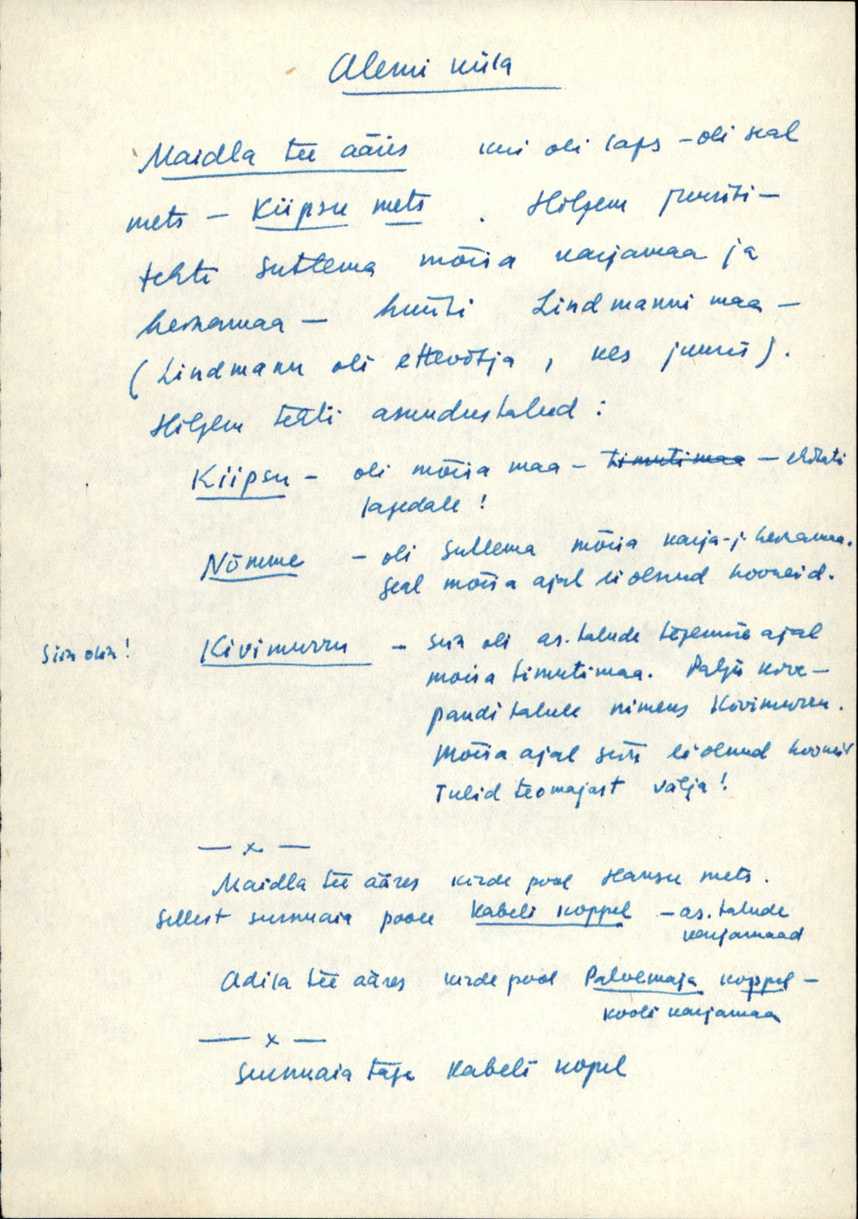 Alemi küla
Maidla tee ääres kui oli laps - oli seal
mets - Kiipsu mets. Hiljem juuriti -
tehti Suttema mõisa karjamaa ja
heinamaa - hüüti Lindmanni maa -
(Lindmann oli ettevõtja, kes juuris).
Hiljem tehti asundustalud:
Kiipsu - oli mõisa maa - timutimaa - ehitati
lagedale!
Nõmme - oli Suttema mõisa karja- j. heinamaa.
Seal mõisa ajal ei olnud hooneid.
Siin olin! Kivimurru - siin oli as. talude tegemise ajal
mõisa timutimaa. Palju kive -
pandi talule nimeks Kivimurru.
Mõisa ajal siin ei olnud hooneid
Tulid teomajast välja!
— x —
Maidla tee ääres kirde pool Hansu mets.
Sellest surnuaia poole Kabeli koppel - as. talude
karjamaad
Adila tee ääres kirde pool Palvemaja koppel -
kooli karjamaa
— x —
Surnuaia taga Kabeli kopel